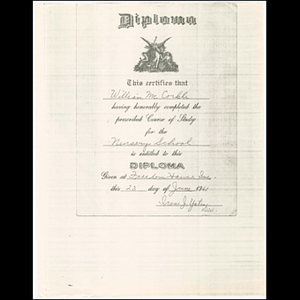 Diploma
This certifies that
William McCorkle
having honorably completed the
prescribed Course of Study
for the
Nursery School
is entitled to this
DIPLOMA
Given at Freedom House Inc.
this 23 day of June 1961
Irene J.